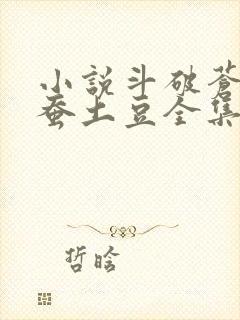 小說斗破蒼
蚕土豆全集
哲晗